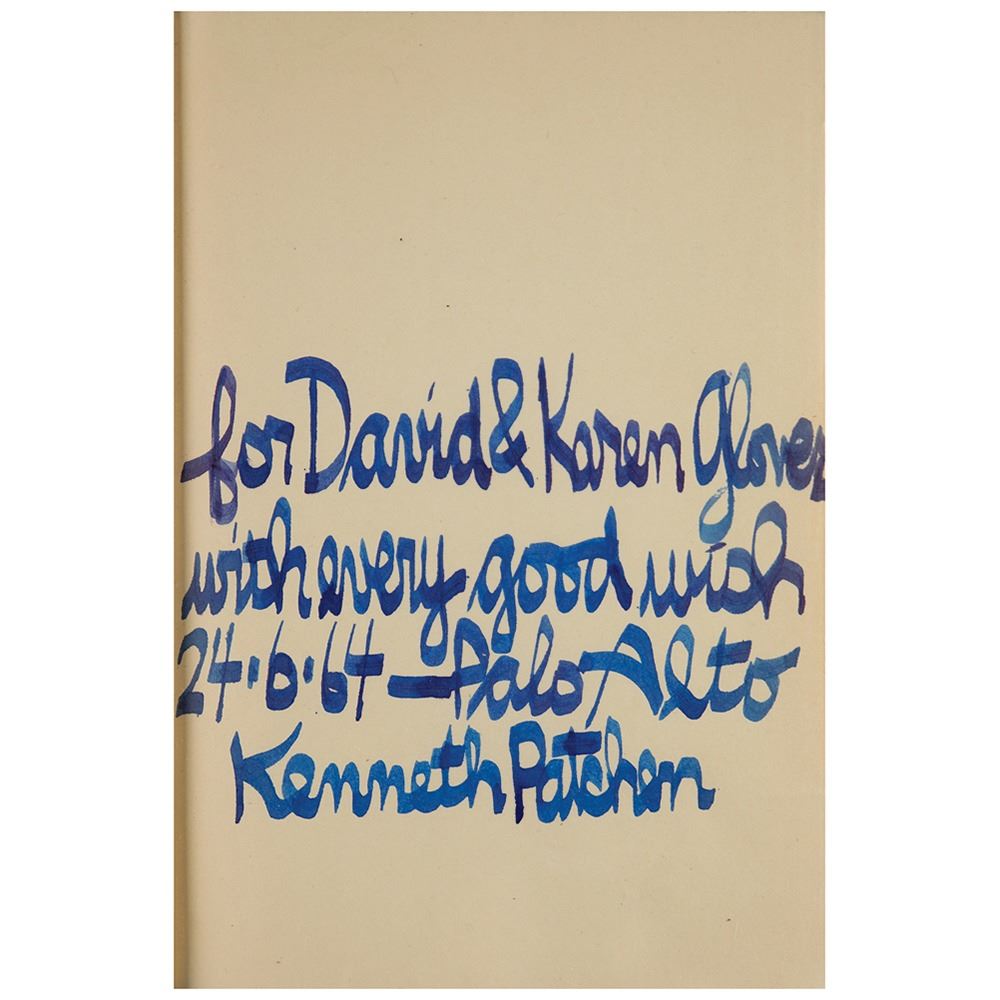 for David & Karen Glover
with every good wish
24·6·64 — Palo Alto
Kenneth Patchen